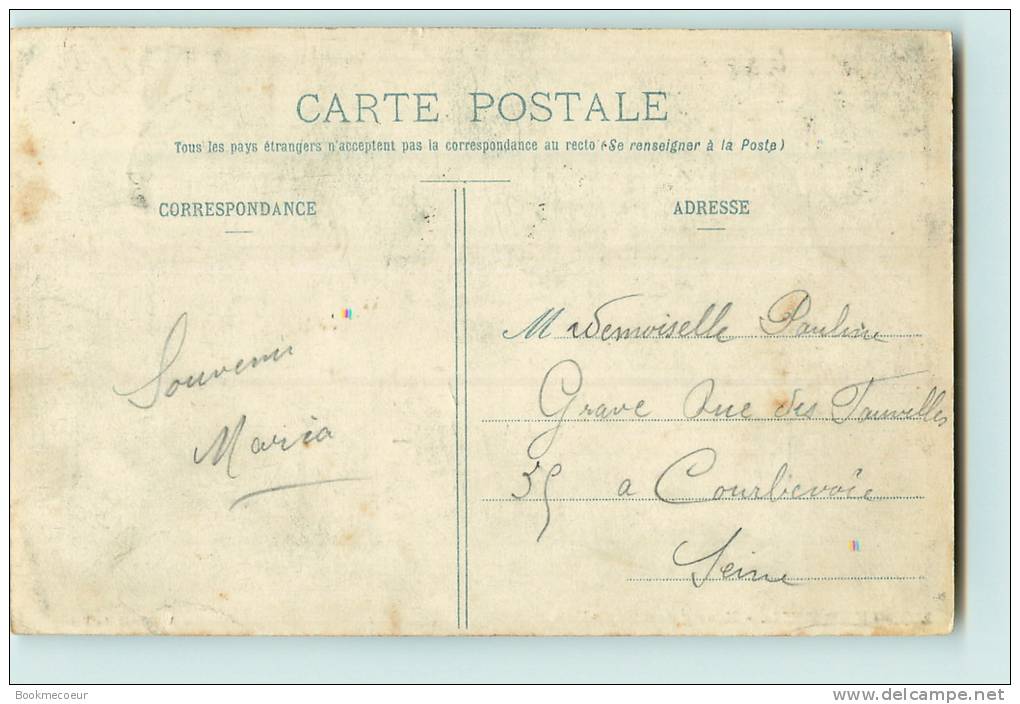 CARTE POSTALE
Tous les pays étrangers n'acceptent pas la correspondance au recto (Se renseigner à la Poste)
CORRESPONDANCE
ADRESSE
Souvenir
Maria
Mademoiselle Pauline
Grave Rue des
35 a Courbevoie
Seine
Bookmecoeur
www.delcampe.net